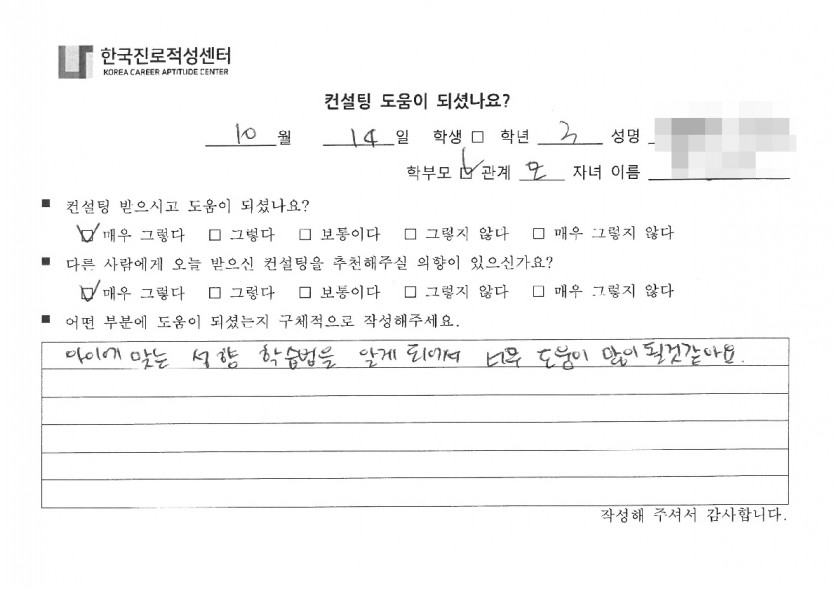 한국진로적성센터
KOREA CAREER APTITUDE CENTER
컨설팅 도움이 되셨나요?
10 월 14 일 학생 □ 학년 3 성명
학부모 ☑ 관계 모 자녀 이름
■ 컨설팅 받으시고 도움이 되셨나요?
☑ 매우 그렇다 □ 그렇다 □ 보통이다 □ 그렇지 않다 □ 매우 그렇지 않다
■ 다른 사람에게 오늘 받으신 컨설팅을 추천해주실 의향이 있으신가요?
☑ 매우 그렇다 □ 그렇다 □ 보통이다 □ 그렇지 않다 □ 매우 그렇지 않다
■ 어떤 부분에 도움이 되셨는지 구체적으로 작성해주세요.
아이에 맞는 성향 학습법을 알게 되어서 너무 도움이 많이 될것같아요.
작성해 주셔서 감사합니다.